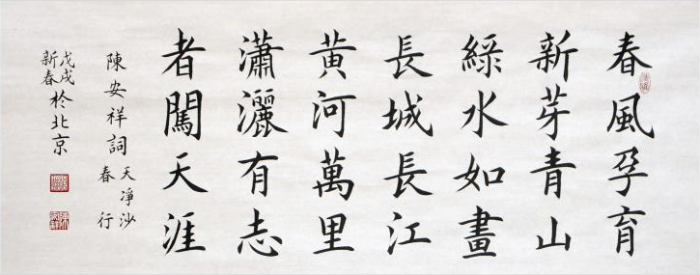 春風孕育
新芽青山
綠水如畫
長城長江
黃河萬里
瀟灑有志
者闖天涯
陳安祥詞
天凈沙
春行
戊戌
新春於北京